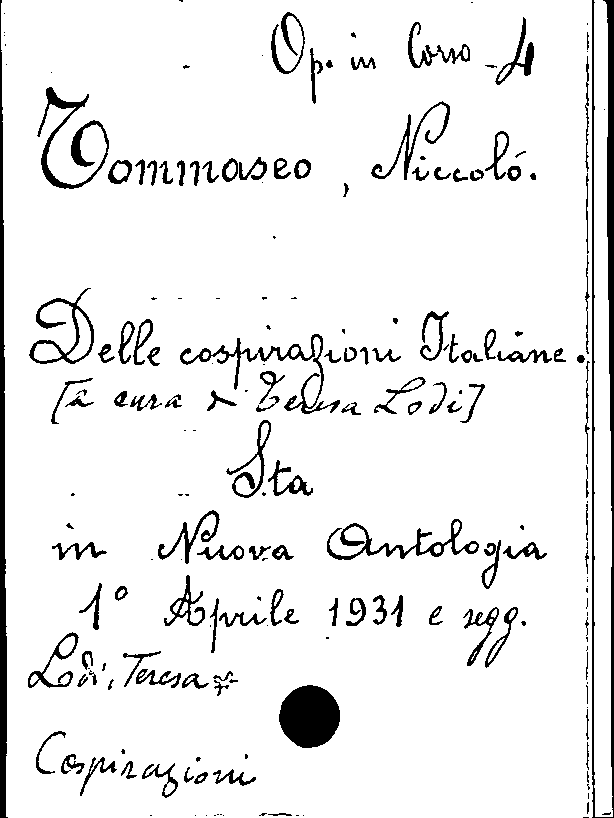 Op. in Corso - 4
Tommaseo, Niccoló.
Delle cospirazioni Italiane.
[a cura di Teresa Lodi]
Sta
in Nuova Antologia
1° Aprile 1931 e segg.
Lodi, Teresa *
Cospirazioni